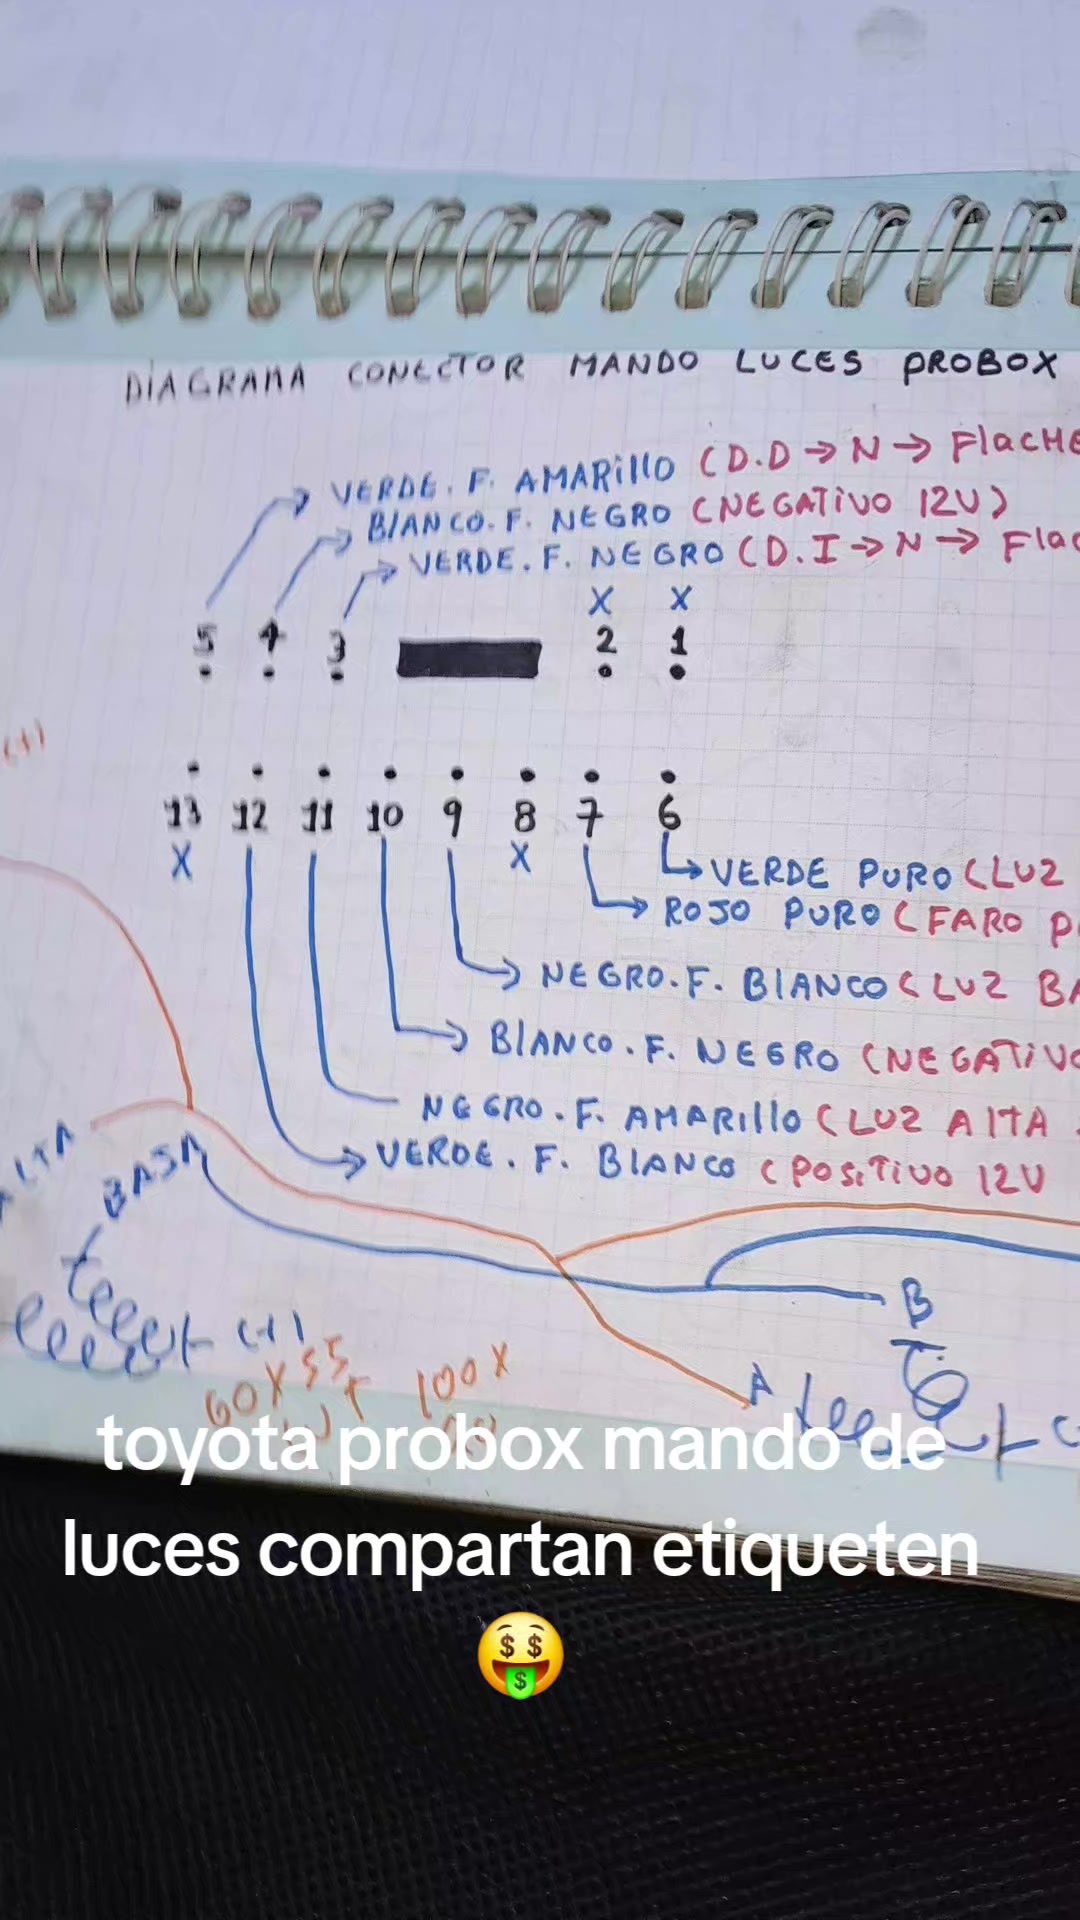 DIAGRAMA CONECTOR MANDO LUCES PROBOX
VERDE. F. AMARILLO (D.D → N → FlaCHE
BLANCO. F. NEGRO (NEGATIVO 12V)
VERDE. F. NEGRO (D.I → N → Flac
X X
5 4 3 2 1
(+)
13 12 11 10 9 8 7 6
X X
VERDE PURO (LUZ
ROJO PURO (FARO P
NEGRO. F. BLANCO (LUZ BA
BLANCO. F. NEGRO (NEGATIVO
NEGRO. F. AMARILLO (LUZ ALTA
VERDE. F. BLANCO (POSITIVO 12V
ALTA
BAJA
B
(+)
60X55
100X
A
toyota probox mando de
luces compartan etiqueten
🤑